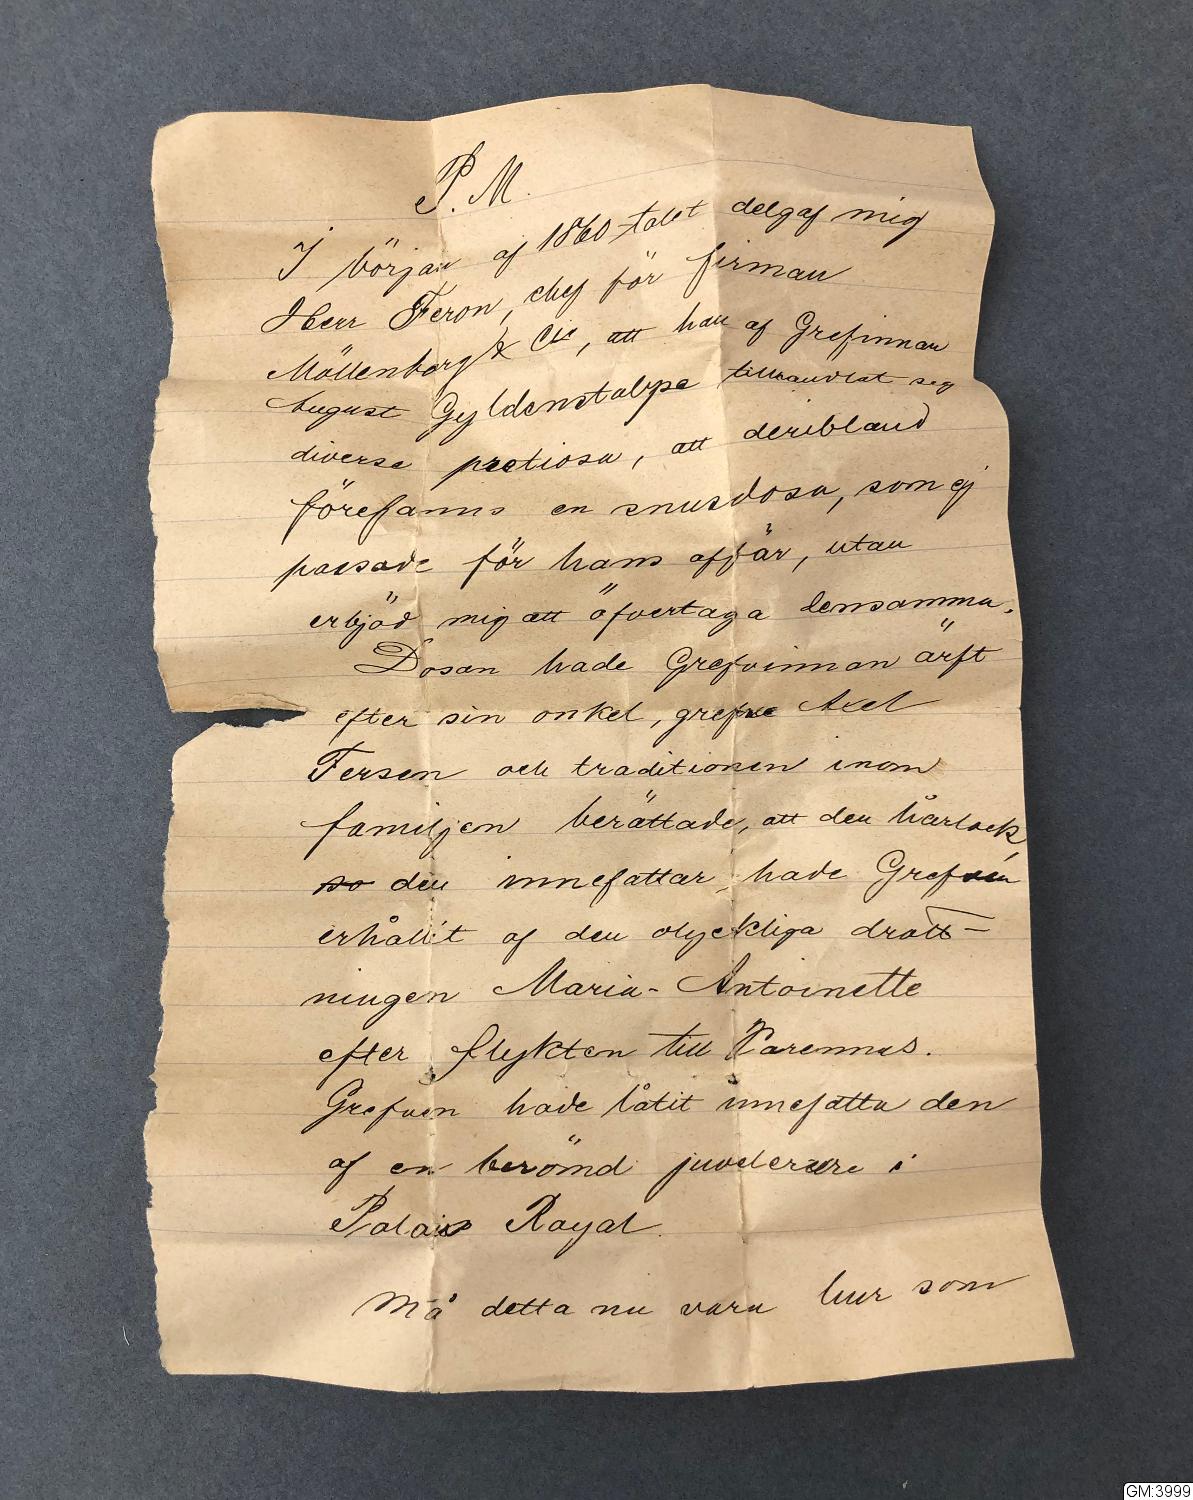 P.M.
I början af 1860-talet delgaf mig
Herr Feron, chef för firman
Möllenborg & Cie, att han af Grefinnan
August Gyldenstolpe tillhandlat seg
diverse pretiosa, att deribland
förefanns en snusdosa, som ej
passade för hans affär, utan
erbjöd mig att öfvertaga densamma.
Dosan hade Grefvinnan ärft
efter sin onkel, grefve Axel
Fersen och traditionen inom
familjen berättade, att den hårlock
so den innefattar, hade Grefven
erhållit af den olyckliga drott-
ningen Maria-Antoinette
efter flykten till Varennes.
Grefven hade låtit innefatta den
af en berömd juvelerare i
Palais Royal.
Må detta nu vara hur som
GM:3999